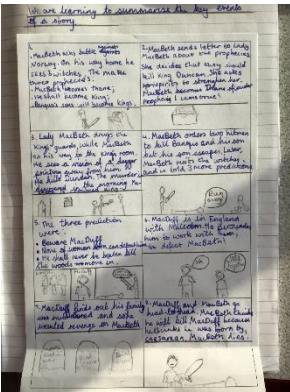 We are learning to summarise the key events
of a story.
1.
MacBeth wins battle against
Norway. On his way home he
sees 3 witches. The make
three prophecies.
• MacBeth becomes Thane;
• He shall become King;
• Banquo's sons will become Kings.
2. MacBeth sends letter to Lady
MacBeth about the prophecies
She decides that they should
kill King Duncan. She asks
spirits to strengthen her.
MacBeth becomes Thane of Cawdor
Prophecy 1 came true.
3. Lady MacBeth drugs the
King's guards, while MacBeth
on his way to the king's room.
He sees a vision of a dagger
pointing away from him.
He kills Duncan. The murder
discovered in the morning.
4. MacBeth orders two hitmen
to kill Banquo and his son
but his son escapes. Later,
MacBeth meets the witches
and is told 3 more predictions
Run away
5. The three prediction
were:
• Beware MacDuff
• None of woman born can defeat him
• He shall never be beaten till
the woods move.
6. MacDuff is in England
with Malcolm. He persuades
him to work with him
to defeat MacBeth!
7. MacDuff finds out his family
was murdered and
wanted revenge on MacBeth
8. MacDuff and MacBeth go
head-to-head. MacBeth thinks
he will kill MacDuff because
he was born by
caesarean. MacBeth dies.